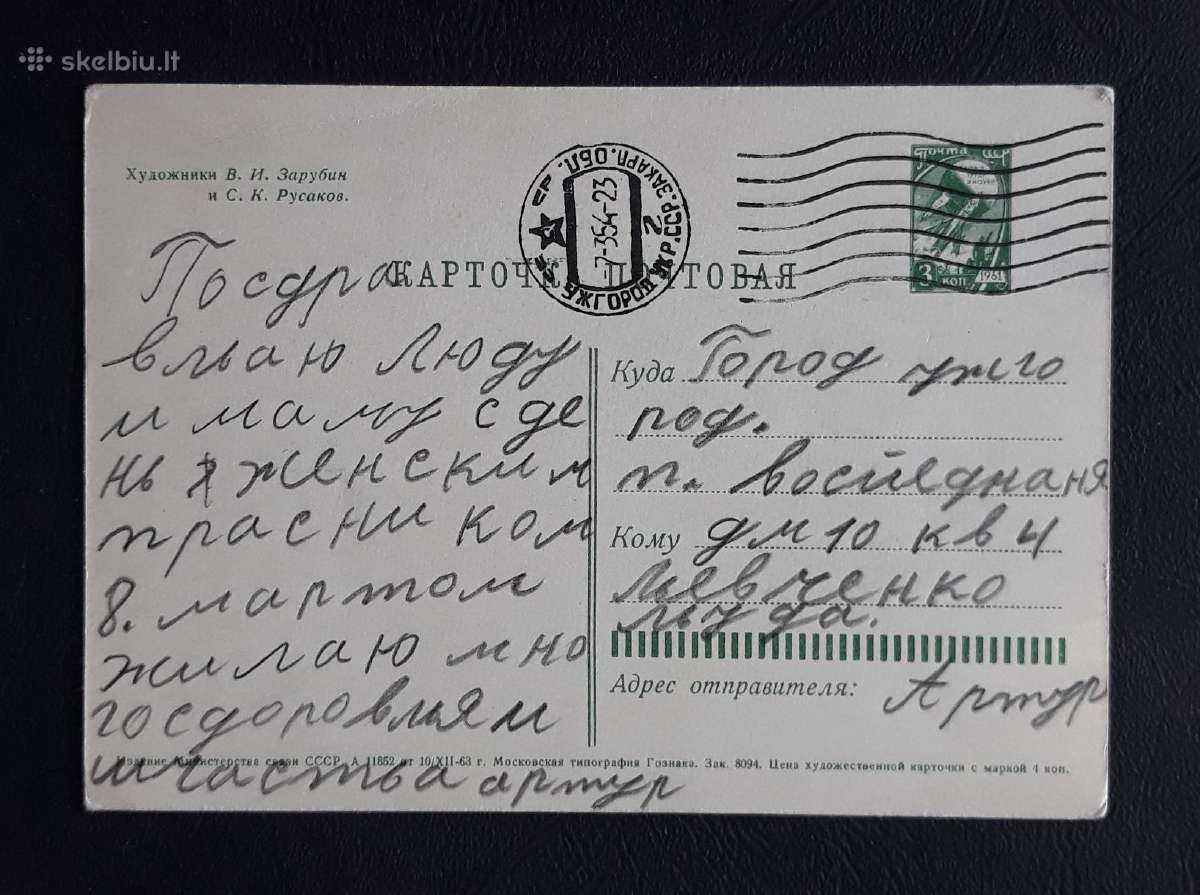 skelbiu.lt
Художники В. И. Зарубин
и С. К. Русаков.
УЖГОРОД УКР.ССР-ЗАКАРП. ОБЛ.
2
7-3564-23
Почта СССР
3 коп
1961
КАРТОЧКА ПОЧТОВАЯ
Посдра
вльаю Люду
и маму с де
нь женским
прасником
8. мартом
жилаю мно
госдоровльям
и счастьа артур
Куда Город ужго
род.
п. воспеднаня
Кому дм 10 кв 4
Шевченко
льуда.
Адрес отправителя: Артур
Издание Министерства связи СССР. А 11852 от 10/XII-63 г. Московская типография Гознака. Зак. 8094. Цена художественной карточки с маркой 4 коп.